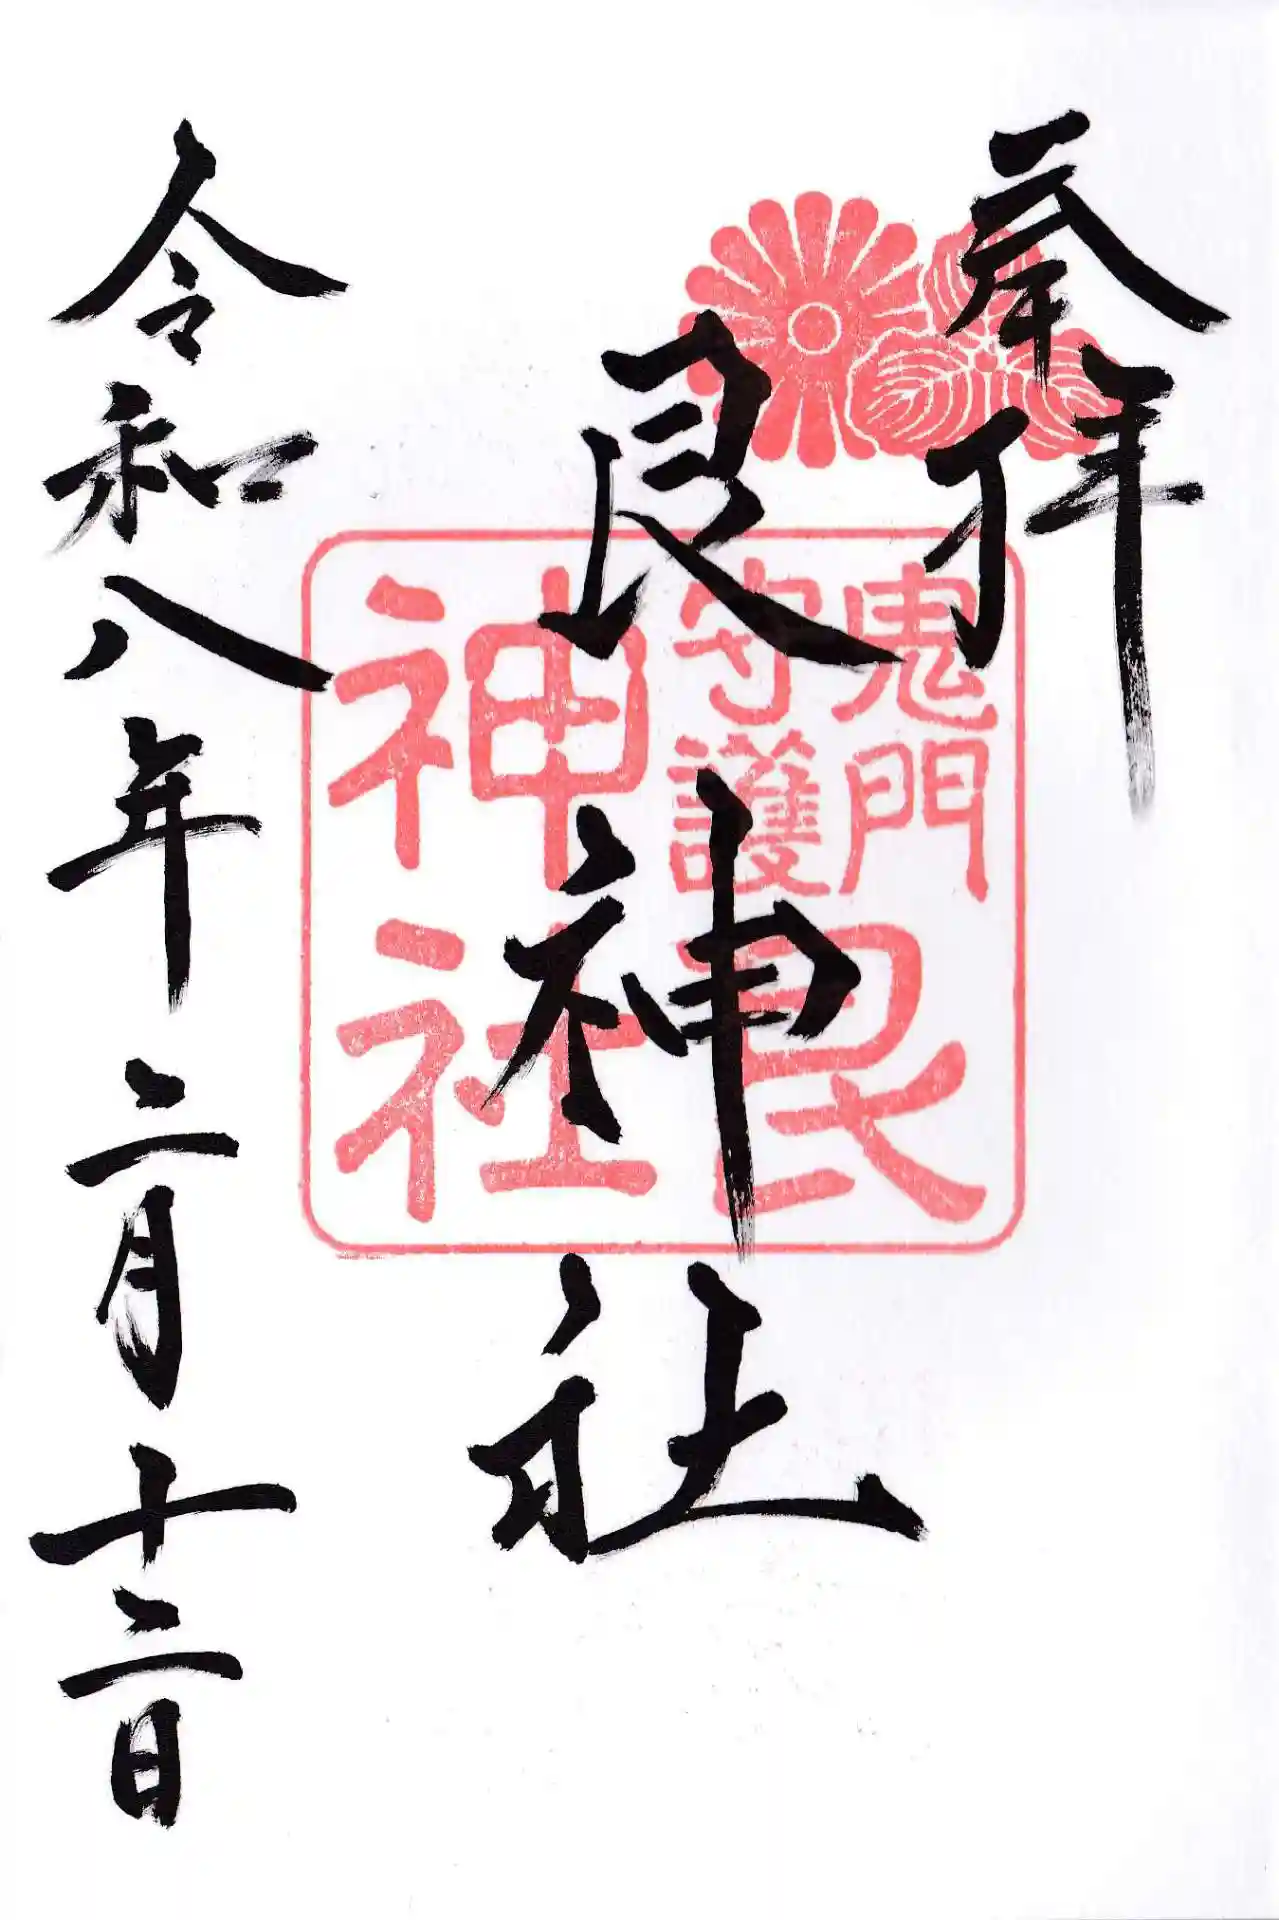 奉拝
艮神社
鬼門
守護
艮
神社
令和八年二月十二日